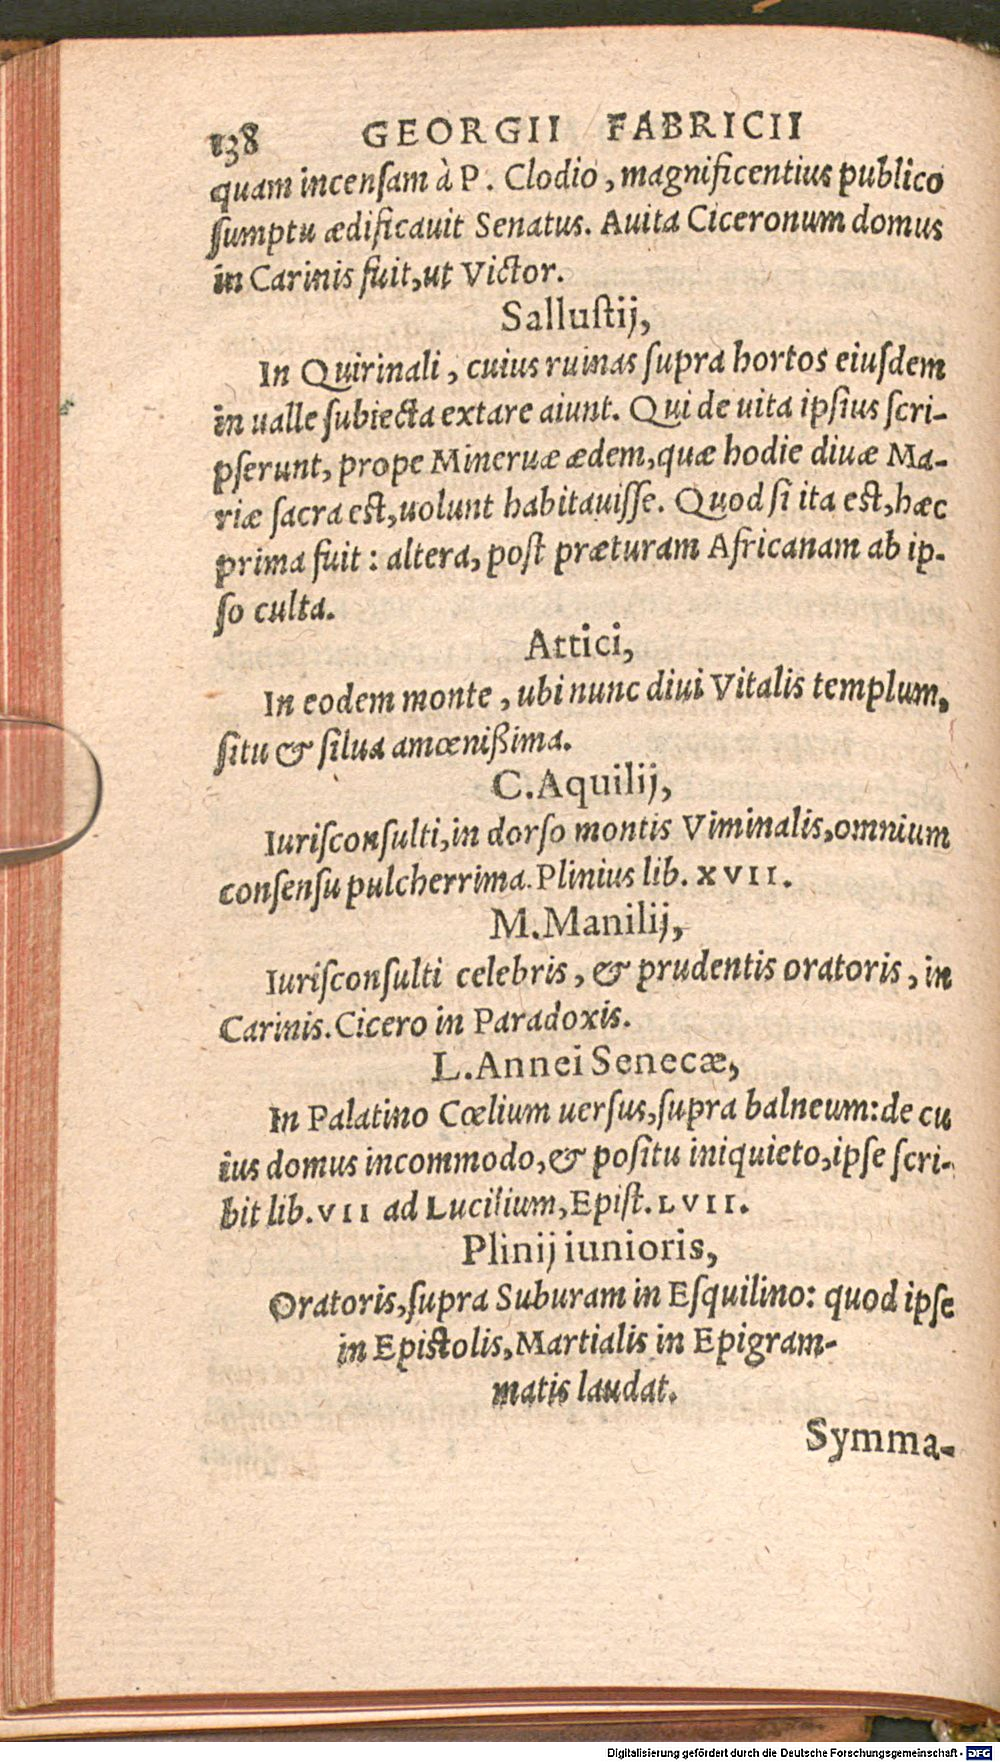 138 GEORGII FABRICII
quam incenſam à P. Clodio, magnificentius publico
ſumptu ædificauit Senatus. Auita Ciceronum domus
in Carinis fuit, ut Victor.
Salluſtij,
In Quirinali, cuius ruinas ſupra hortos eiuſdem
in ualle ſubiecta extare aiunt. Qui de uita ipſius ſcri-
pſerunt, prope Mineruæ ædem, quæ hodie diuæ Ma-
riæ ſacra eſt, uolunt habitauiſſe. Quod ſi ita eſt, hæc
prima fuit: altera, poſt præturam Africanam ab ip-
ſo culta.
Attici,
In eodem monte, ubi nunc diui Vitalis templum,
ſitu & ſilua amœnißima.
C. Aquilij,
Iuriſconſulti, in dorſo montis Viminalis, omnium
conſenſu pulcherrima. Plinius lib. XVII.
M. Manilij,
Iuriſconſulti celebris, & prudentis oratoris, in
Carinis. Cicero in Paradoxis.
L. Annei Senecæ,
In Palatino Cœlium uerſus, ſupra balneum: de cu
ius domus incommodo, & poſitu iniquieto, ipſe ſcri-
bit lib. VII ad Lucilium, Epiſt. LVII.
Plinij iunioris,
Oratoris, ſupra Suburam in Eſquilino: quod ipſe
in Epiſtolis, Martialis in Epigram-
matis laudat.
Symma-
Digitalisierung gefördert durch die Deutsche Forschungsgemeinschaft - DFG